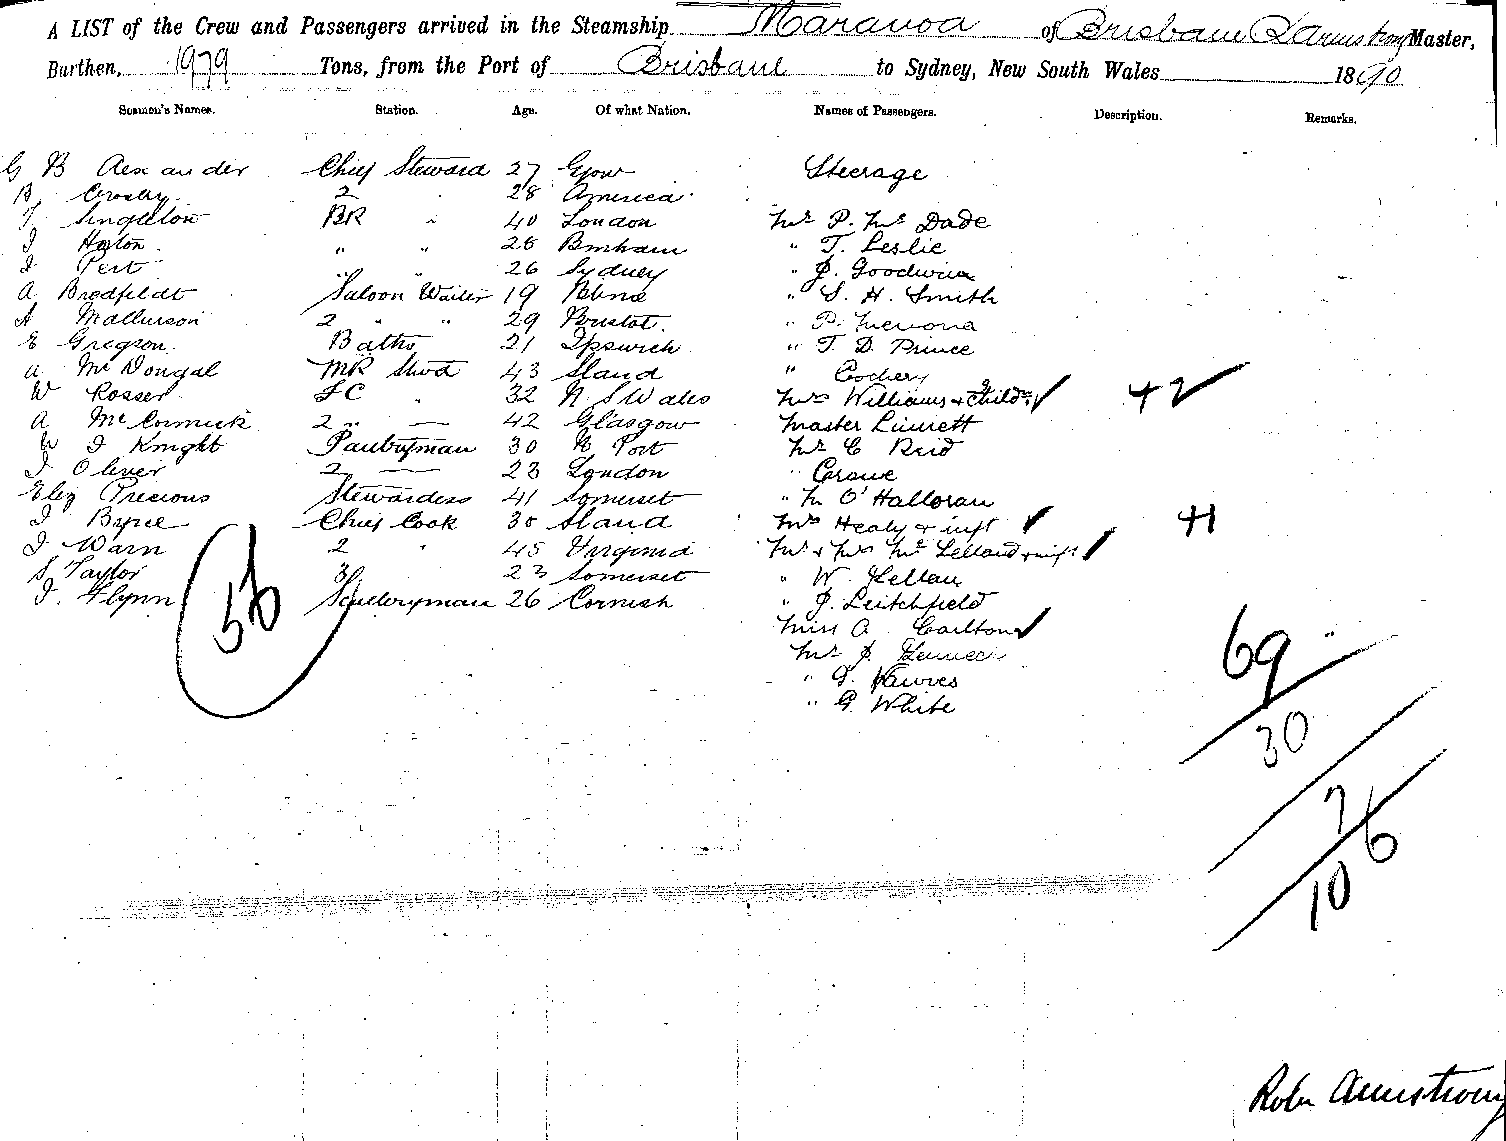 A LIST of the Crew and Passengers arrived in the Steamship Maranoa of Brisbane R Armstrong Master,
Burthen, 1979 Tons, from the Port of Brisbane to Sydney, New South Wales 1890
Seamen's Names. Station. Age. Of what Nation. Names of Passengers. Description. Remarks.
G B Alexander Chief Steward 27 Steerage
B Crosby 2 " 28 America
T Singleton BR " 40 London Mr P. Mc Dade
J Horton " " 26 " T. Leslie
J Pert " " 26 Sydney " J. Goodwin
A Bredfeldt Saloon Waiter 19 " S. H. Smith
A 2 " " 29 Bristol. " P.
E Gregson Baths 21 Ipswich " T. D. Prince
A Mc Dougal MR Stwd 43 Sland "
W Rosser FC " 32 N S Wales Mrs Williams + child +2
A Mc Cormick 2 " — 42 Glasgow Master Linnett
W J Knight Pantryman 30 Port Mr C Reid
J Oliver 2 — 23 London "
Eliz Precious Stewardess 41 Somerset " M O'Halloran
J Bryce Chief Cook 30 Sland Mrs Healy + inft +1
J Warn 2 " 45 Virginia Mr + Mrs Mc Lelland + inft
S Taylor 3 23 Somerset " W.
J. Flynn Sculleryman 26 Cornish " J. Leitchfield
56
Miss A Carlton
Mr J.
" G.
" G. White
69
30
7
6
10
Robt Armstrong